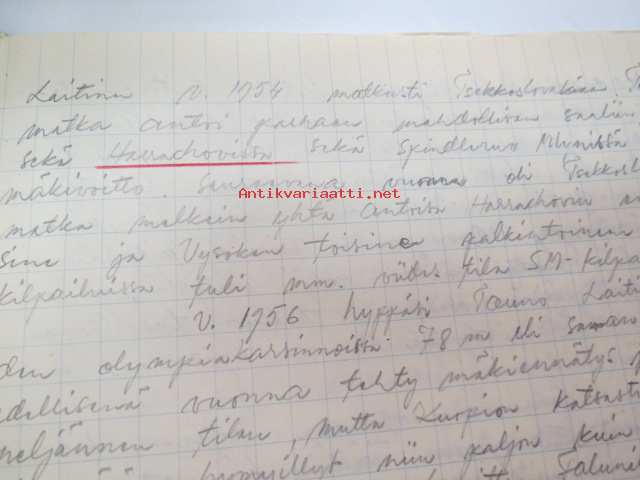 Laitinen v. 1954 matkusti Tsekkoslovakiaan
matka antoi parhaan mahdollisen saaliin
sekä Harrachovissa sekä Spindleruv Mlynissä
Antikvariaatti.net
mäkivoitto. Seuraavana vuonna oli Tsekkosl
matka melkein yhtä antoisa Harrachovin
sine ja Vysokan toisine palkintoineen
kilpailuissa tuli mm. viides tila SM-kilpa
V. 1956 hyppäsi Tauno Laiti
den olympiakarsinnoissa 78 m eli saman
edellisenä vuonna tehty mäkiennätys
neljännen tilan, mutta Kuopion katsast
hypyillyt niin paljon kuin
Falunin